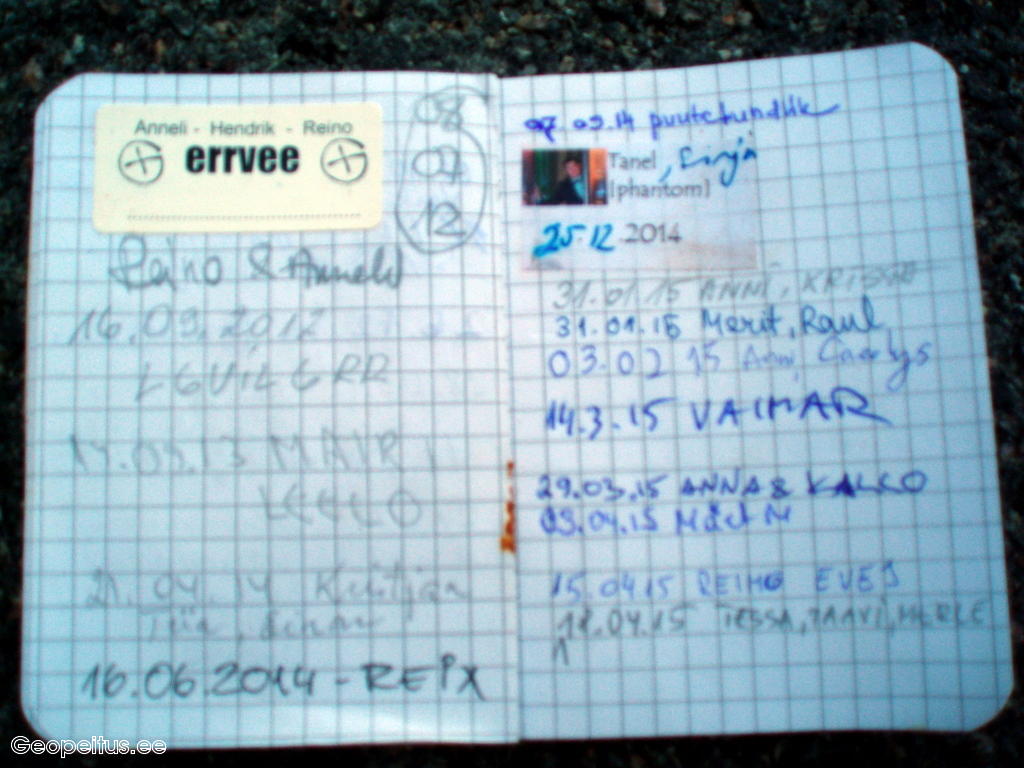 Anneli - Hendrik - Reino
errvee
08
07
12
Reino & Anneli
16.09.2012
14.09.13 MAIRI
LEELO
21.04.14 Kristjan
Tiia,
16.06.2014 - REPX
07.09.14 puutetundlik
Tanel, Sirja
[phantom]
25.12.2014
31.01.15 ANNI, KRISSA
31.01.15 Merit, Raul
03.02 15 Anni,
14.3.15 VAIMAR
29.03.15 ANNA & KALLO
03.04.15 Märt M
15.04.15 REIMO EVELI
18.04.15 TESSA, TAAVI, MERLE
Geopeitus.ee